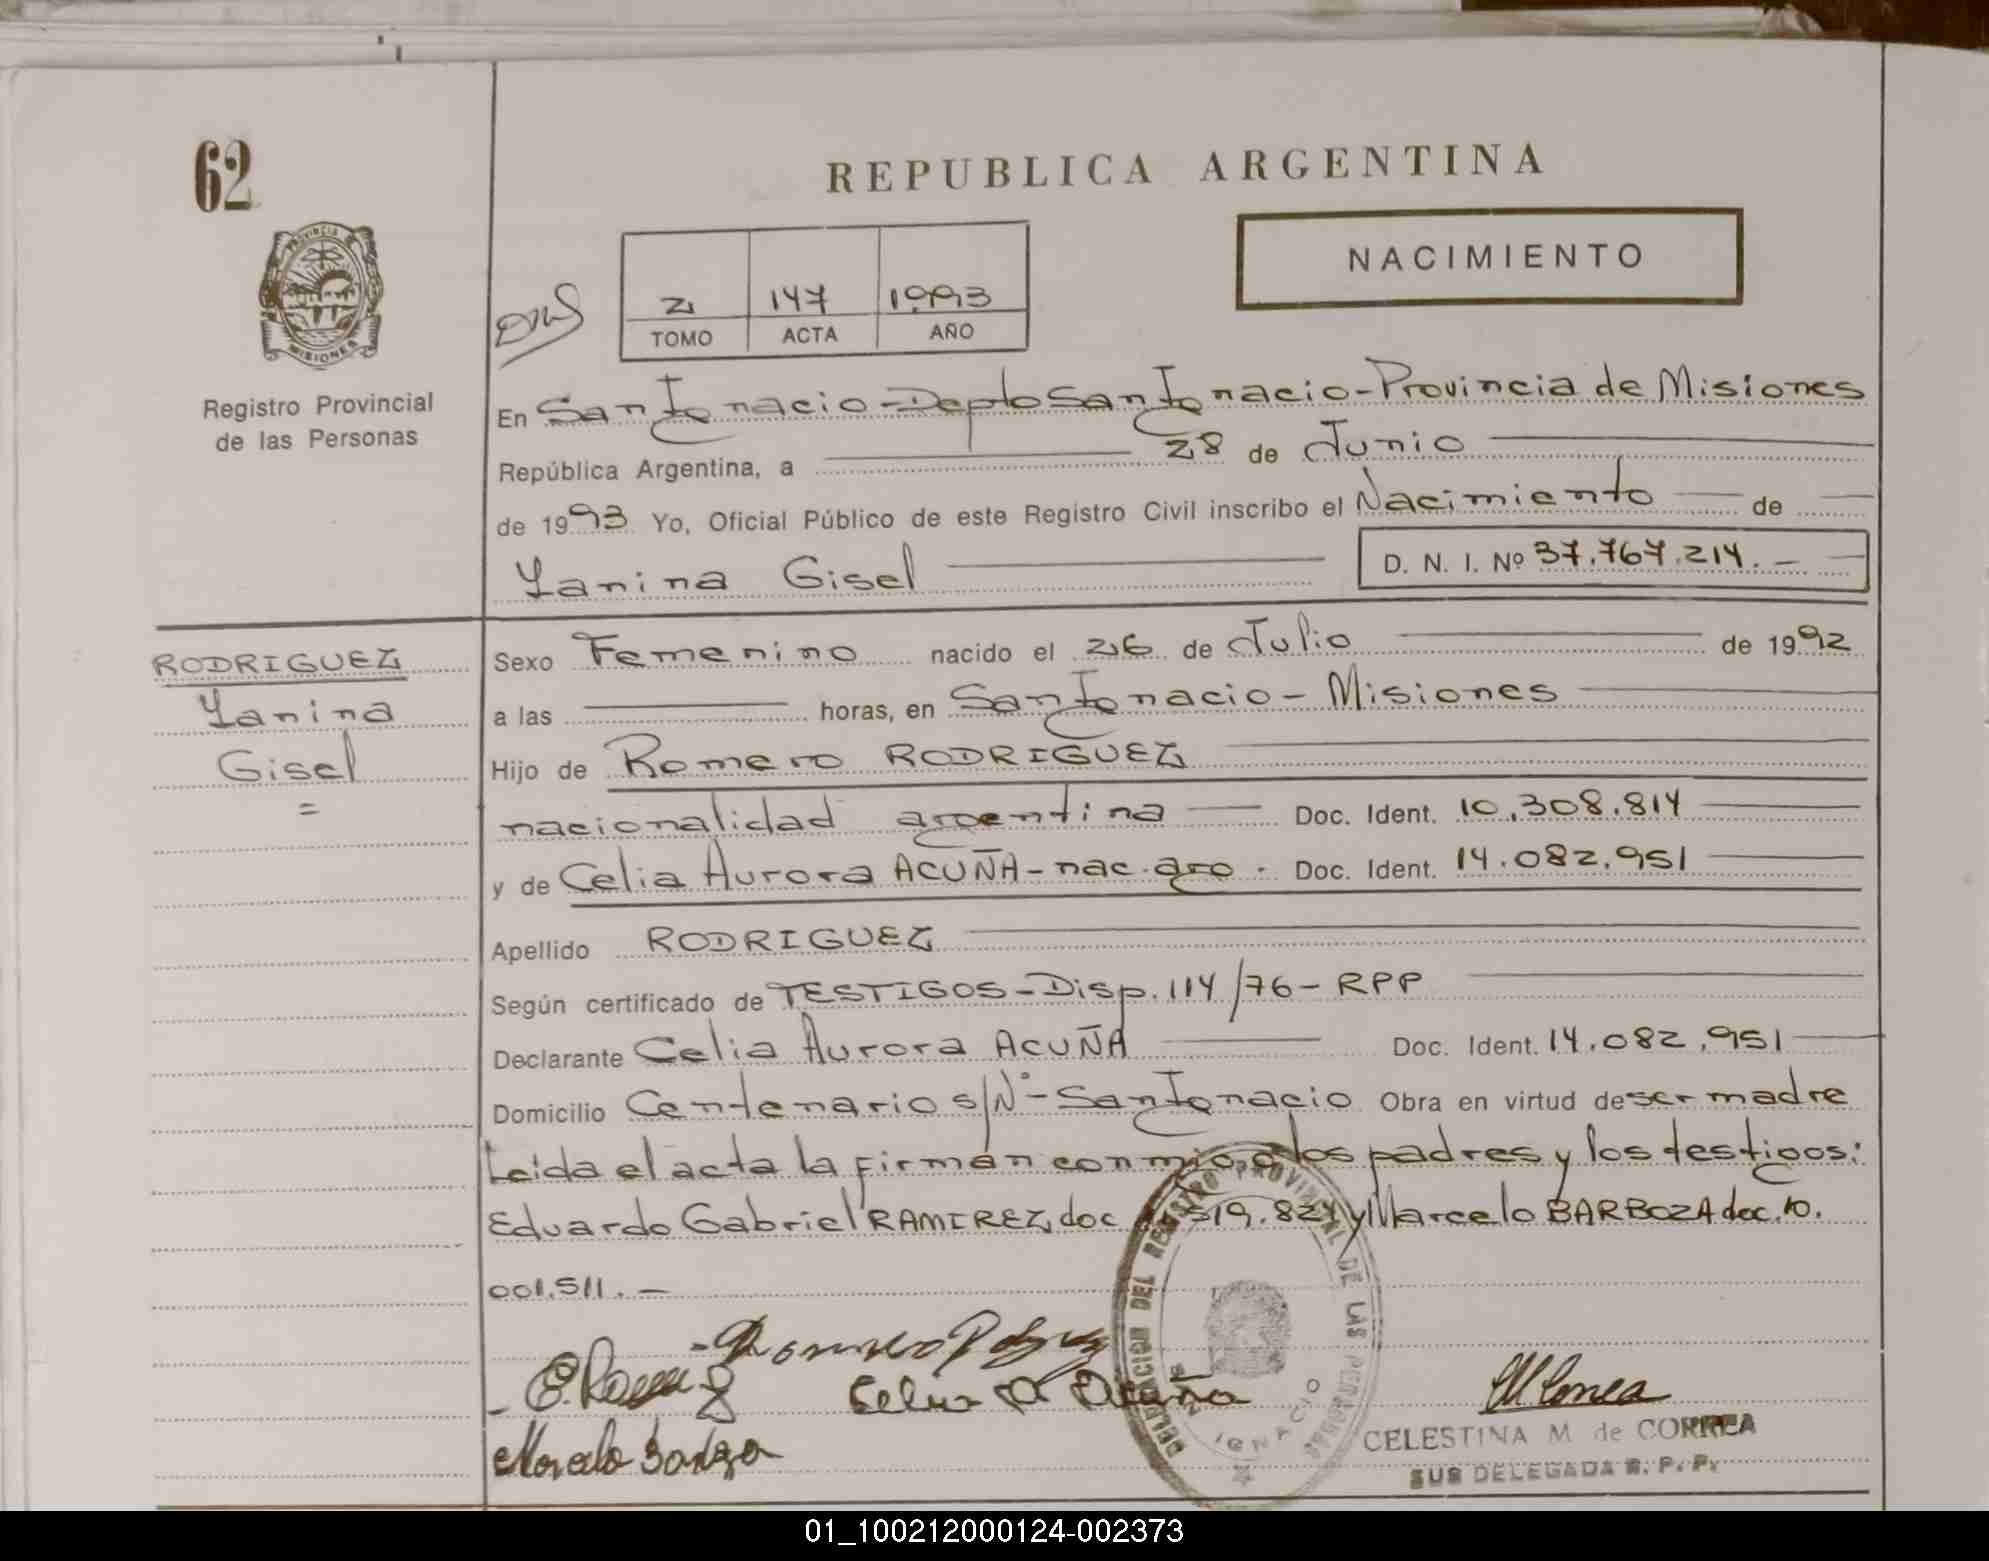 62
REPUBLICA ARGENTINA
NACIMIENTO
PROVINCIA DE
MISIONES
2 147 1993
TOMO ACTA AÑO
Registro Provincial
de las Personas
En San Ignacio - Depto San Ignacio - Provincia de Misiones
República Argentina, a 28 de Junio
de 1993 Yo, Oficial Público de este Registro Civil inscribo el Nacimiento de
Yanina Gisel D. N. I. Nº 37.767.214.-
RODRIGUEZ
Yanina
Gisel
=
Sexo Femenino nacido el 26 de Julio de 1992
a las horas, en San Ignacio - Misiones
Hijo de Romero RODRIGUEZ
nacionalidad argentina Doc. Ident. 10.308.814
y de Celia Aurora ACUÑA - nac. arg. Doc. Ident. 14.082.951
Apellido RODRIGUEZ
Según certificado de TESTIGOS - Disp. 114/76 - RPP
Declarante Celia Aurora ACUÑA Doc. Ident. 14.082.951
Domicilio Centenario s/Nº - San Ignacio Obra en virtud de ser madre
Leida el acta la firman conmigo los padres y los testigos:
Eduardo Gabriel RAMIREZ doc. 519.827 y Marcelo BARBOZA doc. 10.
001.511.-
DELEGACION DEL REGISTRO PROVINCIAL DE LAS PERSONAS
IGNACIO
Celia A Acuña
CELESTINA M de CORREA
SUB DELEGADA R. P. P.
01_100212000124-002373